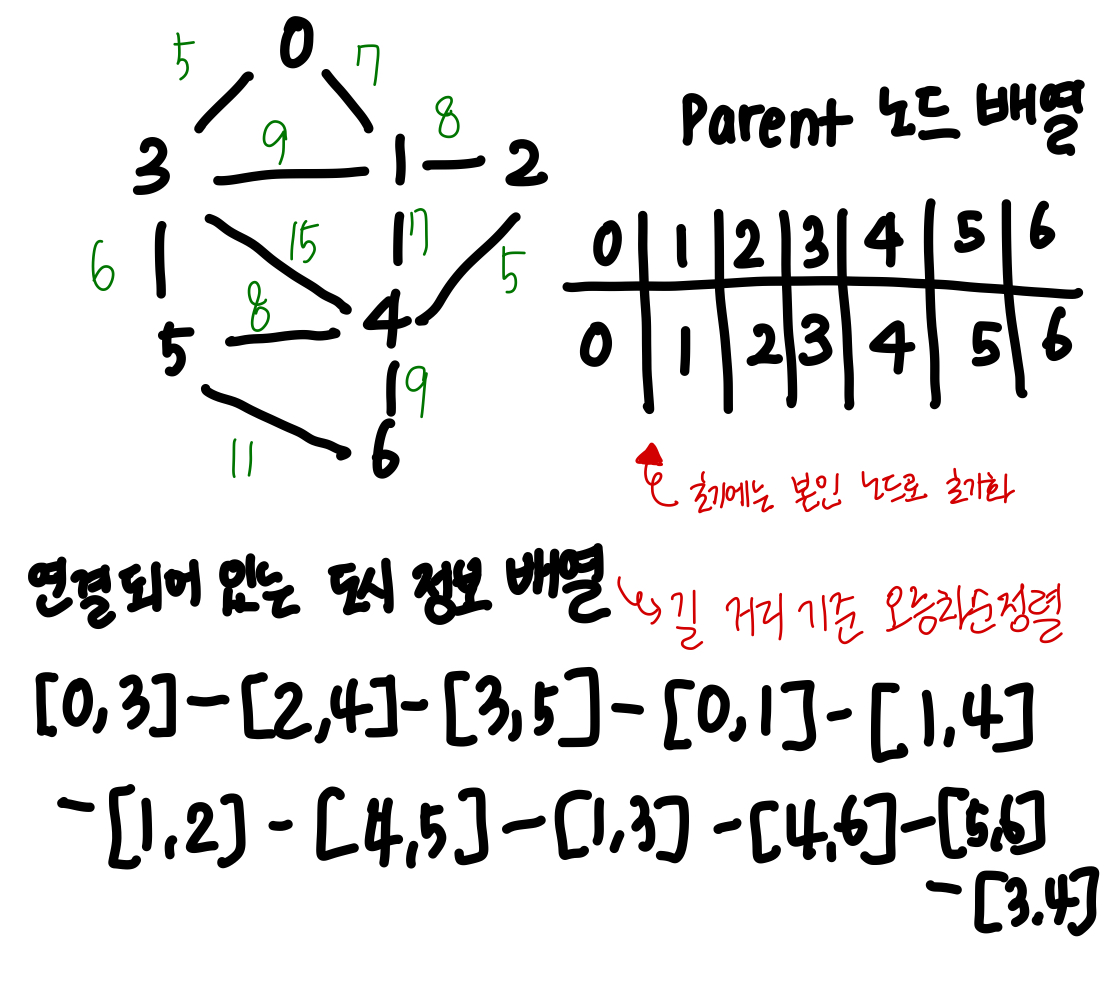 0
5
7
3
9
1
8
2
6
15
7
5
8
5
4
9
11
6
Parent 노드 배열
0 1 2 3 4 5 6
0 1 2 3 4 5 6
초기에는 본인 노드로 초기화
연결되어 있는 도시 정보 배열
길 거리 기준 오름차순정렬
[0,3] - [2,4] - [3,5] - [0,1] - [1,4]
- [1,2] - [4,5] - [1,3] - [4,6] - [5,6]
- [3.4]